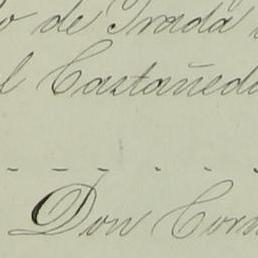 de Prada
Castañeda
Don